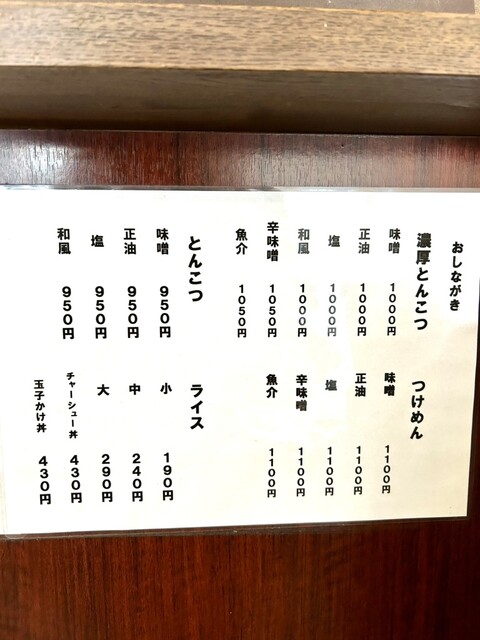 おしながき
濃厚とんこつ
味噌 1000円
正油 1000円
塩 1000円
和風 1000円
辛味噌 1050円
魚介 1050円
とんこつ
味噌 950円
正油 950円
塩 950円
和風 950円
つけめん
味噌 1100円
正油 1100円
塩 1100円
辛味噌 1100円
魚介 1100円
ライス
小 190円
中 240円
大 290円
チャーシュー丼 430円
玉子かけ丼 430円